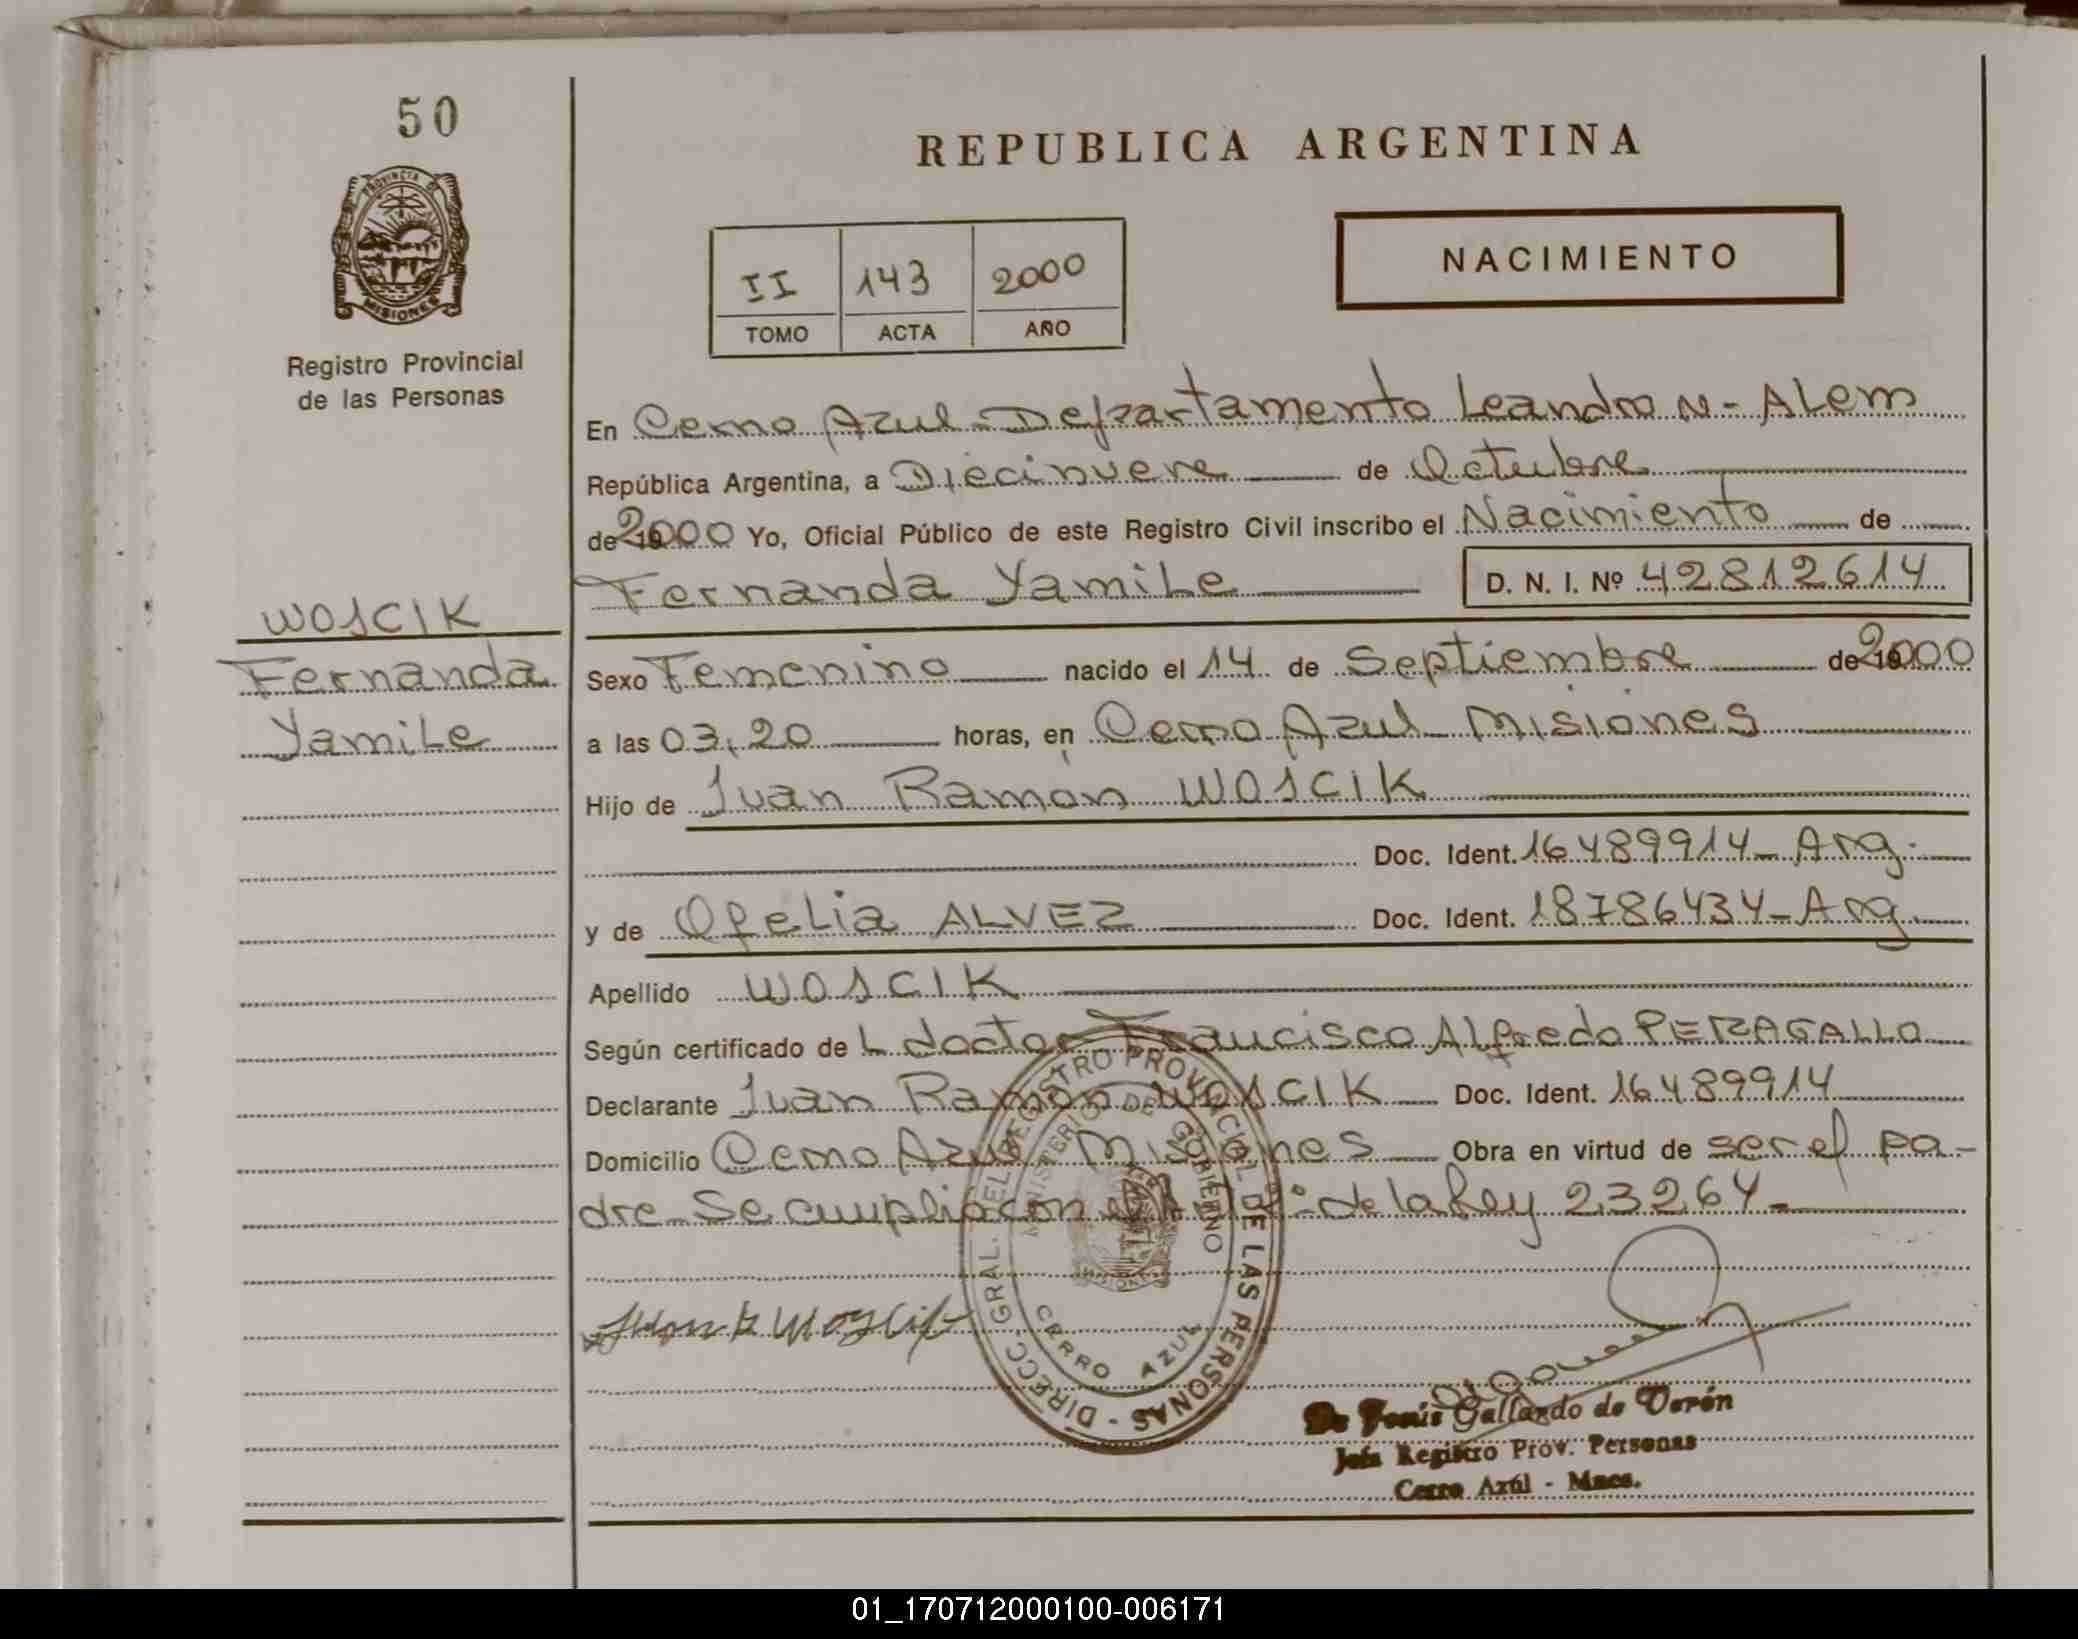 50
PROVINCIA DE
MISIONES
Registro Provincial
de las Personas
WOSCIK
Fernanda
Yamile
REPUBLICA ARGENTINA
II 143 2000
TOMO ACTA AÑO
NACIMIENTO
En Cerro Azul - Departamento Leandro N - ALem
República Argentina, a Diecinueve de Octubre
de 2000 Yo, Oficial Público de este Registro Civil inscribo el Nacimiento de
Fernanda Yamile D. N. I. Nº 42812614
Sexo Femenino nacido el 14 de Septiembre de 2000
a las 03,20 horas, en Cerro Azul - Misiones
Hijo de Juan Ramón WOSCIK
Doc. Ident. 16489914 - Arg.
y de Ofelia ALVEZ Doc. Ident. 18786434 - Arg.
Apellido WOSCIK
Según certificado de L doctor Francisco Alfredo PERAGALLO
Declarante Juan Ramón WOSCIK Doc. Ident. 16489914
Domicilio Cerro Azul Misiones Obra en virtud de ser el pa-
dre - Se cumplio con el de la Ley 23264 -
DIRECC. GRAL. DEL REGISTRO PROVINCIAL DE LAS PERSONAS -
MINISTERIO DE GOBIERNO
CERRO AZUL
Gallardo de Verón
Jefa Registro Prov. Personas
Cerro Azúl - Mnes.
01_170712000100-006171